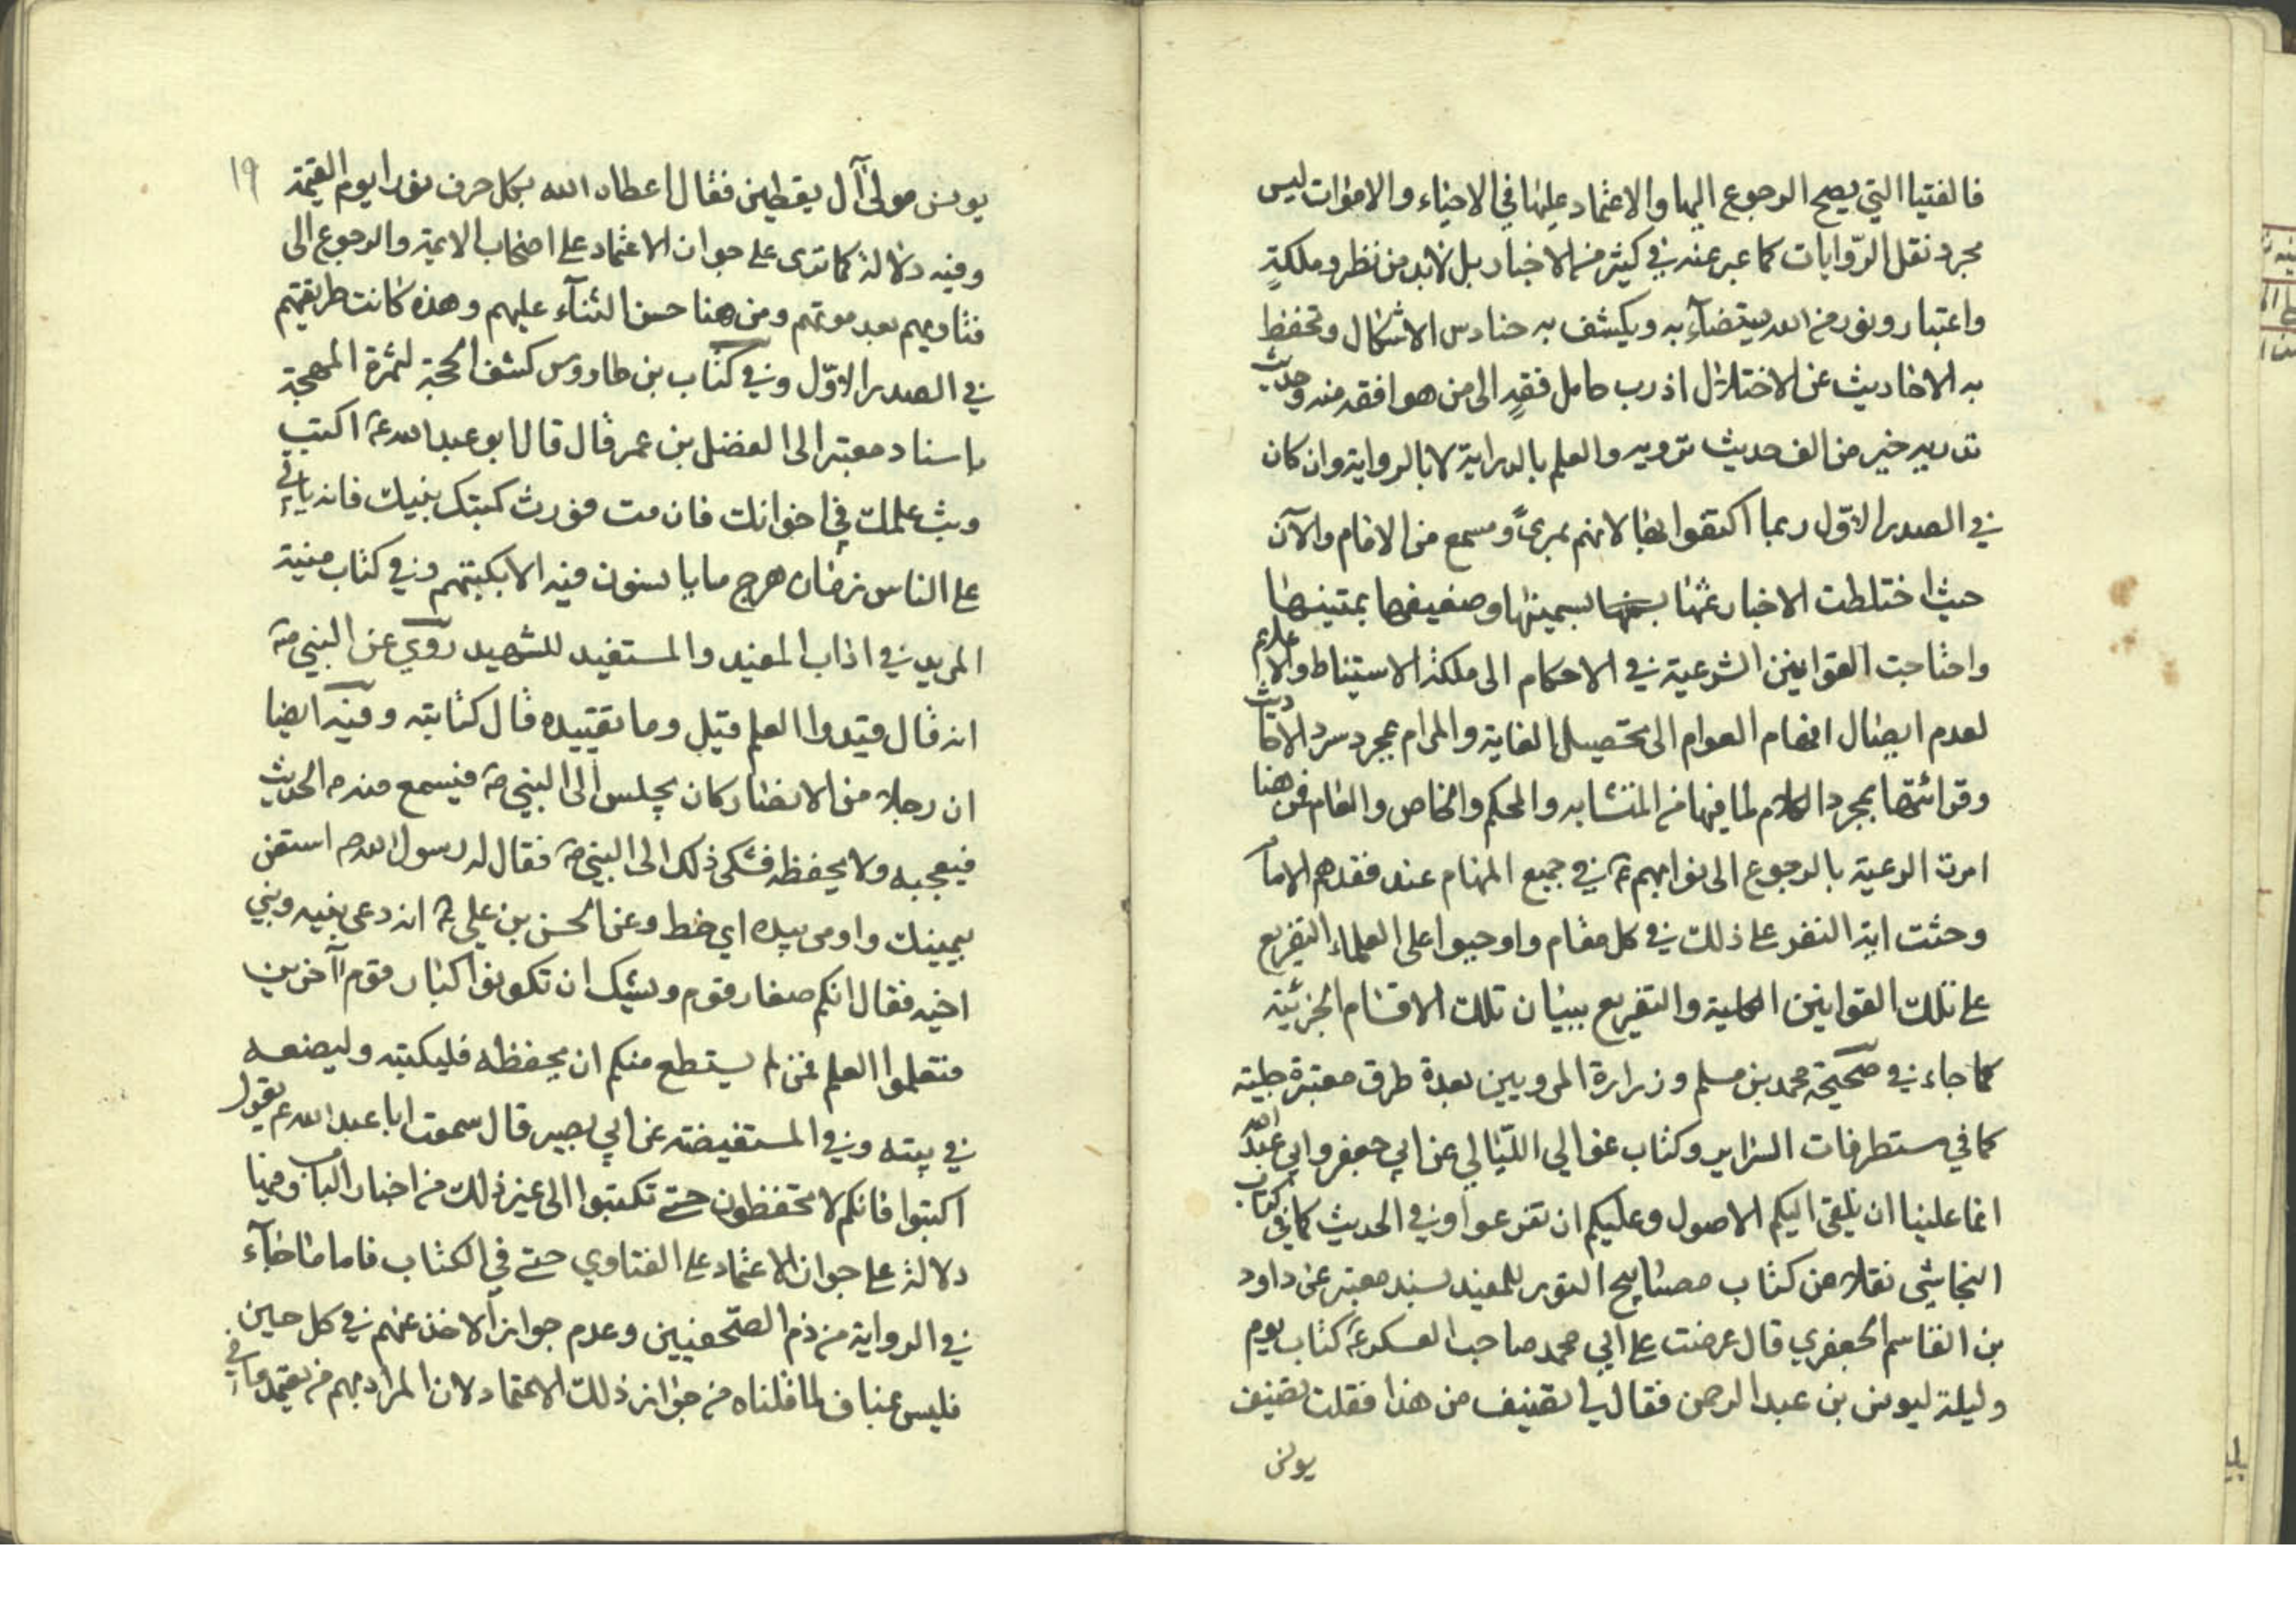 فالفتيا التي يصح الرجوع اليها والاعتماد عليها في الاحياء والاموات ليس
مجرد نقل الرّوايات كما عبر عنه في كثير من الاخبار بل لابد من نظر وملكةٍ
واعتبار ونور من الله يستضآء به ويكشف به حنادس الاشكال وتحفظ
به الاحاديث عن الاختلال اذ رب حامل فقهٍ الى من هو افقه منه وحديث
تدريه خير من الف حديث ترويه والعلم بالدراية لا بالرواية وان كان
في الصدر الاوّل ربما اكتفوا بها لانهم بمرئً ومسمع من الامام والآن
حيث اختلطت الاخبار غثها بسمينها وضعيفها بمتينها
واحتاجت القوانين الشرعية في الاحكام الى ملكة الاستنباط والاعلام
لعدم ايصال افهام العوام الى تحصيل الغاية والمرام بمجرد سرد الاحاديث
وقرائتها بمجرد الكلام لما فيها من المتشابه والمحكم والخاص والعام فمن هنا
امرت الرعية بالرجوع الى نوابهم ع في جميع المهام عند فقدهم الامام
وحثت اية النفر على ذلك في كل مقام واوجبوا على العلماء التفريع
على تلك القوانين الكلية والتفريع ببيان تلك الاقسام الجزئية
كما جاء في صحيحة محمد بن مسلم وزرارة المرويين بعدة طرق معتبرة جلية
كما في مستطرفات السراير وكتاب غوالي اللئالي عن ابي جعفر وابي عبد الله
انما علينا ان نلقي اليكم الاصول وعليكم ان تفرعوا وفي الحديث كما في كتاب
النجاشي نقلا من كتاب مصابيح النور للمفيد بسند معتبر عن داود
بن القاسم الجعفري قال عرضت على ابي محمد صاحب العسكر ع كتاب يوم
وليلة ليونس بن عبد الرحمن فقال لي تصنيف من هذا فقلت تصنيف
يونس
١٩
يونس مولى آل يقطين فقال اعطاه الله بكل حرف نورا يوم القيمة
وفيه دلالة كما ترى على جواز الاعتماد على اصحاب الائمة والرجوع الى
فتاويهم بعد موتهم ومن هنا حسن الثنآء عليهم وهذه كانت طريقتهم
في الصدر الاوّل وفي كتاب بن طاووس كشف المحجة لثمرة المهجة
باسناد معتبر الى المفضل بن عمر قال قال ابو عبد الله ع اكتب
وبث علمك في اخوانك فان مت فورث كتبك بنيك فانه ياتي
على الناس زمان هرج ما يانسون فيه الا بكتبهم وفي كتاب منية
المريد في اداب المفيد والمستفيد للشهيد روي عن النبي ص
انه قال قيدوا العلم قيل وما تقييده قال كتابته وفيه ايضا
ان رجلا من الانصار كان يجلس الى النبي ص فيسمع منه ص الحديث
فيعجبه ولا يحفظه فشكى ذلك الى النبي ص فقال له رسول الله ص استعن
بيمينك واومى بيده اي خط وعن الحسن بن علي ع انه دعى بنيه وبني
اخيه فقال انكم صغار قوم ويوشك ان تكونوا كبار قوم آخرين
فتعلموا العلم فمن لم يستطع منكم ان يحفظه فليكتبه وليضعه
في بيته وفي المستفيضة عن ابي بصير قال سمعت ابا عبد الله ع يقول
اكتبوا فانكم لا تحفظون حتى تكتبوا الى غير ذلك من اخبار الباب وفيها
دلالة على جواز الاعتماد على الفتاوي حتى في الكتاب فاما ما جآء
في الرواية من ذم الصّحفيين وعدم جواز الاخذ عنهم في كل حين
فليس بمناف لما قلناه من جواز ذلك الاعتماد لان المراد بهم من يعتمد ما في